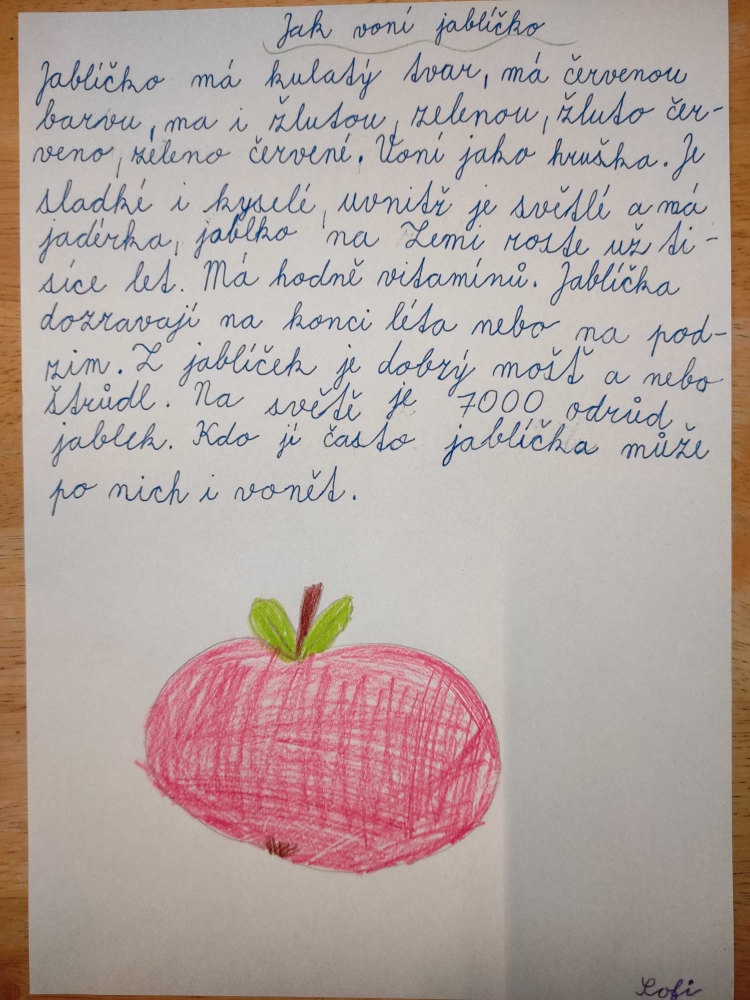 Jak voní jablíčko
Jablíčko má kulatý tvar, má červenou
barvu, ma i žlutou, zelenou, žluto čer-
veno, zeleno červené. Voní jako hruška. Je
sladké i kyselé, uvnitř je světlé a má
jadérka, jablko na Zemi roste už ti-
síce let. Má hodně vitamínů. Jablíčka
dozravají na konci léta nebo na pod-
zim. Z jablíček je dobrý mošt a nebo
štrůdl. Na světě je 7000 odrůd
jablek. Kdo jí často jablíčka může
po nich i vonět.
Sofi